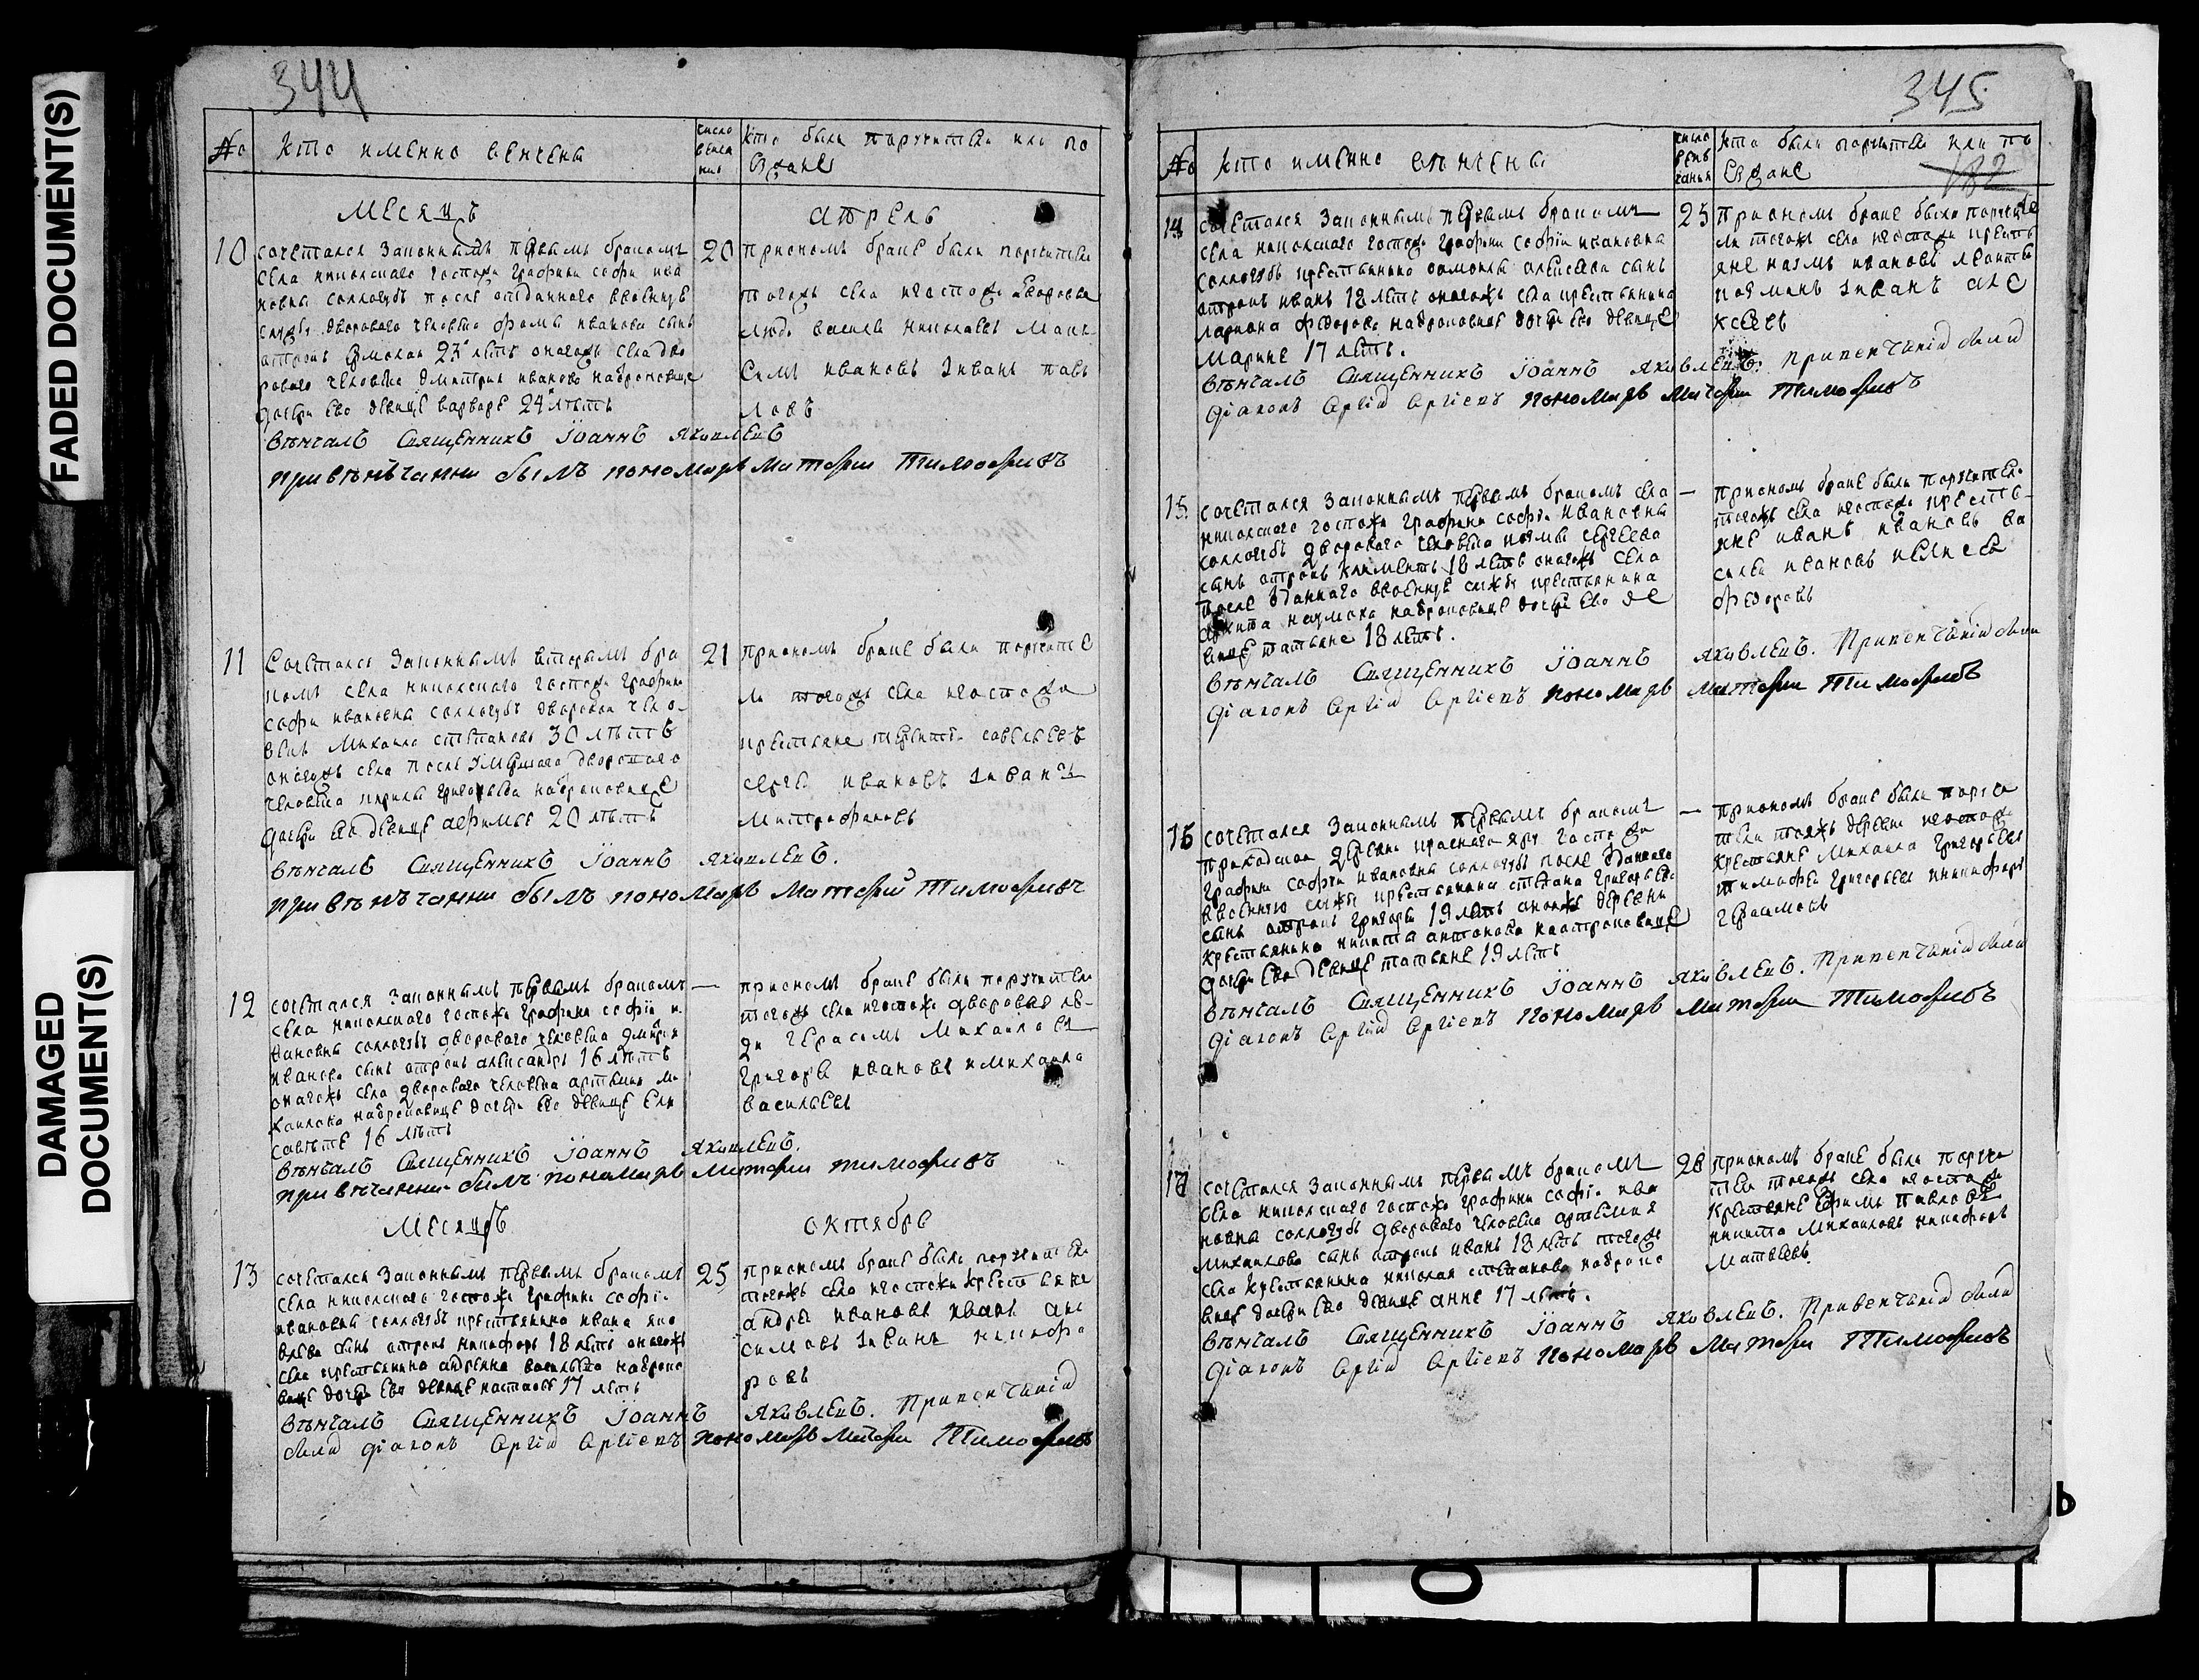 FADED DOCUMENT(S)
DAMAGED
DOCUMENT(S)
344
№
кто именно венчены
число
венча
ния
кто были поручители или по
езжане
месяцъ
апрель
10
сочетался законнымъ первымъ бракомъ
села николскаго госпожи графини софи ива
новны соллогубъ после отданного ввоенную
службу дворового человека фомы иванова сынъ
отрокъ 23 летъ оногожъ села дво
рового человека дмитрия иванова набраковице
дочери ево девице варваре 24 летъ
20
приономъ браке были поручители
тогожъ села игоспожи дворовые
люди василей николаевъ макъ
симъ ивановъ иванъ павъ
ловъ
вѣнчалъ Священникъ Іоаннъ Яковлевъ
при вѣнѣчании былъ пономарь Матфеи Тимофиевъ
11
Сочетался законнымъ вторымъ бра
комъ села николскаго госпожи графини
софи ивановны соллогубъ дворовои чело
векъ михаила степановъ 30 летъ
оногожъ села после умершаго дворового
человека кирилы григорьева набраковице
дочери ево девице афимье 20 летъ
21
приономъ браке были поручите
ли тогожъ села игоспожи
крестьяне терентеи савельевъ
сергеи ивановъ иванъ
митрофановъ
вѣнчалъ Священникъ Іоаннъ Яковлевъ.
при вѣнѣчании былъ пономарь Матфей Тимофиевъ
12
сочетался законнымъ первымъ бракомъ
села николскаго госпожи графини софіи и
вановны соллогубъ дворового человека дмитрия
иванова сынъ отрокъ александръ 16 летъ
оногожъ села дворового человека артемия ми
хаилова набраковице дочери ево девице ели
савете 16 летъ
—
приономъ браке были поручители
тогожъ села игоспожи дворовые лю
ди герасимъ михаиловъ
григореи ивановъ имихаила
васильевъ
вѣнчалъ Священникъ Іоаннъ Яковлевъ.
при вѣчании былъ пономарь Матфеи тимофиевъ
месяцъ
октябрь
13
сочетался законнымъ первымъ бракомъ
села николскаго госпожи графини софіи
ивановны соллогубъ крестьянина ивана яко
влева сынъ отрокъ никифоръ 18 летъ оногожъ
села крестьянина андреяна васильева набрако
вице дочери ево девице настасье 17 летъ
25
приономъ браке были поручители
тогожъ села игоспожи крестьяне
андреи ивановъ иванъ
симовъ иванъ никифо
ровъ
вѣнчалъ Священникъ Іоаннъ Яковлевъ. При венчаніи
были діаконъ Сергіи Сергіевъ пономарь Матфеи Тимофиевъ
345
182
№
кто именно венчены
число
венъ
чанья
кто были поручители или по
езжане
14
сочетался законнымъ первымъ бракомъ
села николскаго госпожи графини софіи ивановны
соллогубъ крестьянина самоилы алексеева сынъ
отрокъ иванъ 18 летъ оногожъ села крестьянина
лариона федорова набраковице дочери ево девице
марине 17 летъ.
25
приономъ браке были поручите
ли тогожъ села игоспожи кресть
яне наумъ ивановъ леонтеи
козминъ иванъ але
ксеевъ
вѣнчалъ Священникъ Іоаннъ Яковлевъ. При венчаніи были
діаконъ Сергіи Сергіевъ пономарь Матфеи Тимофиевъ
15
сочетался законнымъ первымъ бракомъ села
николского госпожи графини софіи ивановны
соллогубъ дворового человека козмы сергеева
сынъ отрокъ климентъ 18 летъ оногожъ села
после зданнаго ввоенную службу крестьянина
наумова набраковице дочери ево де
вице татьяне 18 летъ.
—
приономъ браке были поручители
тогожъ села игоспожи крестья
яне иванъ ивановъ ва
силеи ивановъ иелисеи
федоровъ
вѣнчалъ Священникъ Іоаннъ Яковлевъ. При венчаніи были
діаконъ Сергіи Сергіевъ пономарь Матфеи Тимофиевъ
16
сочетался законнымъ первымъ бракомъ
приходскои деревни краснаго яру госпожи
графини софи ивановны соллогубъ после зданнаго
ввоенную службу крестьянина степана григорьева
сынъ отрокъ григореи 19 летъ оноижъ деревни
крестьянина никиты антонова наотроковице
дочери ево девице татьяне 19 летъ
—
приономъ браке были поручи
тели тояжъ деревни игоспожи
крестьяне михаила григорьевъ
тимофеи григорьевъ иникифоръ
герасимовъ
вѣнчалъ Священникъ Іоаннъ Яковлевъ. При венчаніи были
діаконъ Сергіи Сергіевъ пономарь Матфеи Тимофиевъ
17
сочетался законнымъ первымъ бракомъ
села николскаго госпожи графини софіи ива
новны соллогубъ дворового человека артемия
михаилова сынъ отрокъ иванъ 18 летъ тогожъ
села крестьянина николая степанова набрако
вице дочери ево девице анне 17 летъ.
28
приономъ браке были поручи
тели тогожъ села игоспожи
крестьяне ефимъ павловъ
никита михаиловъ никифоръ
матвеевъ.
вѣнчалъ Священникъ Іоаннъ Яковлевъ. При венчаніи были
діаконъ Сергіи Сергіевъ пономарь Матфеи Тимофиевъ